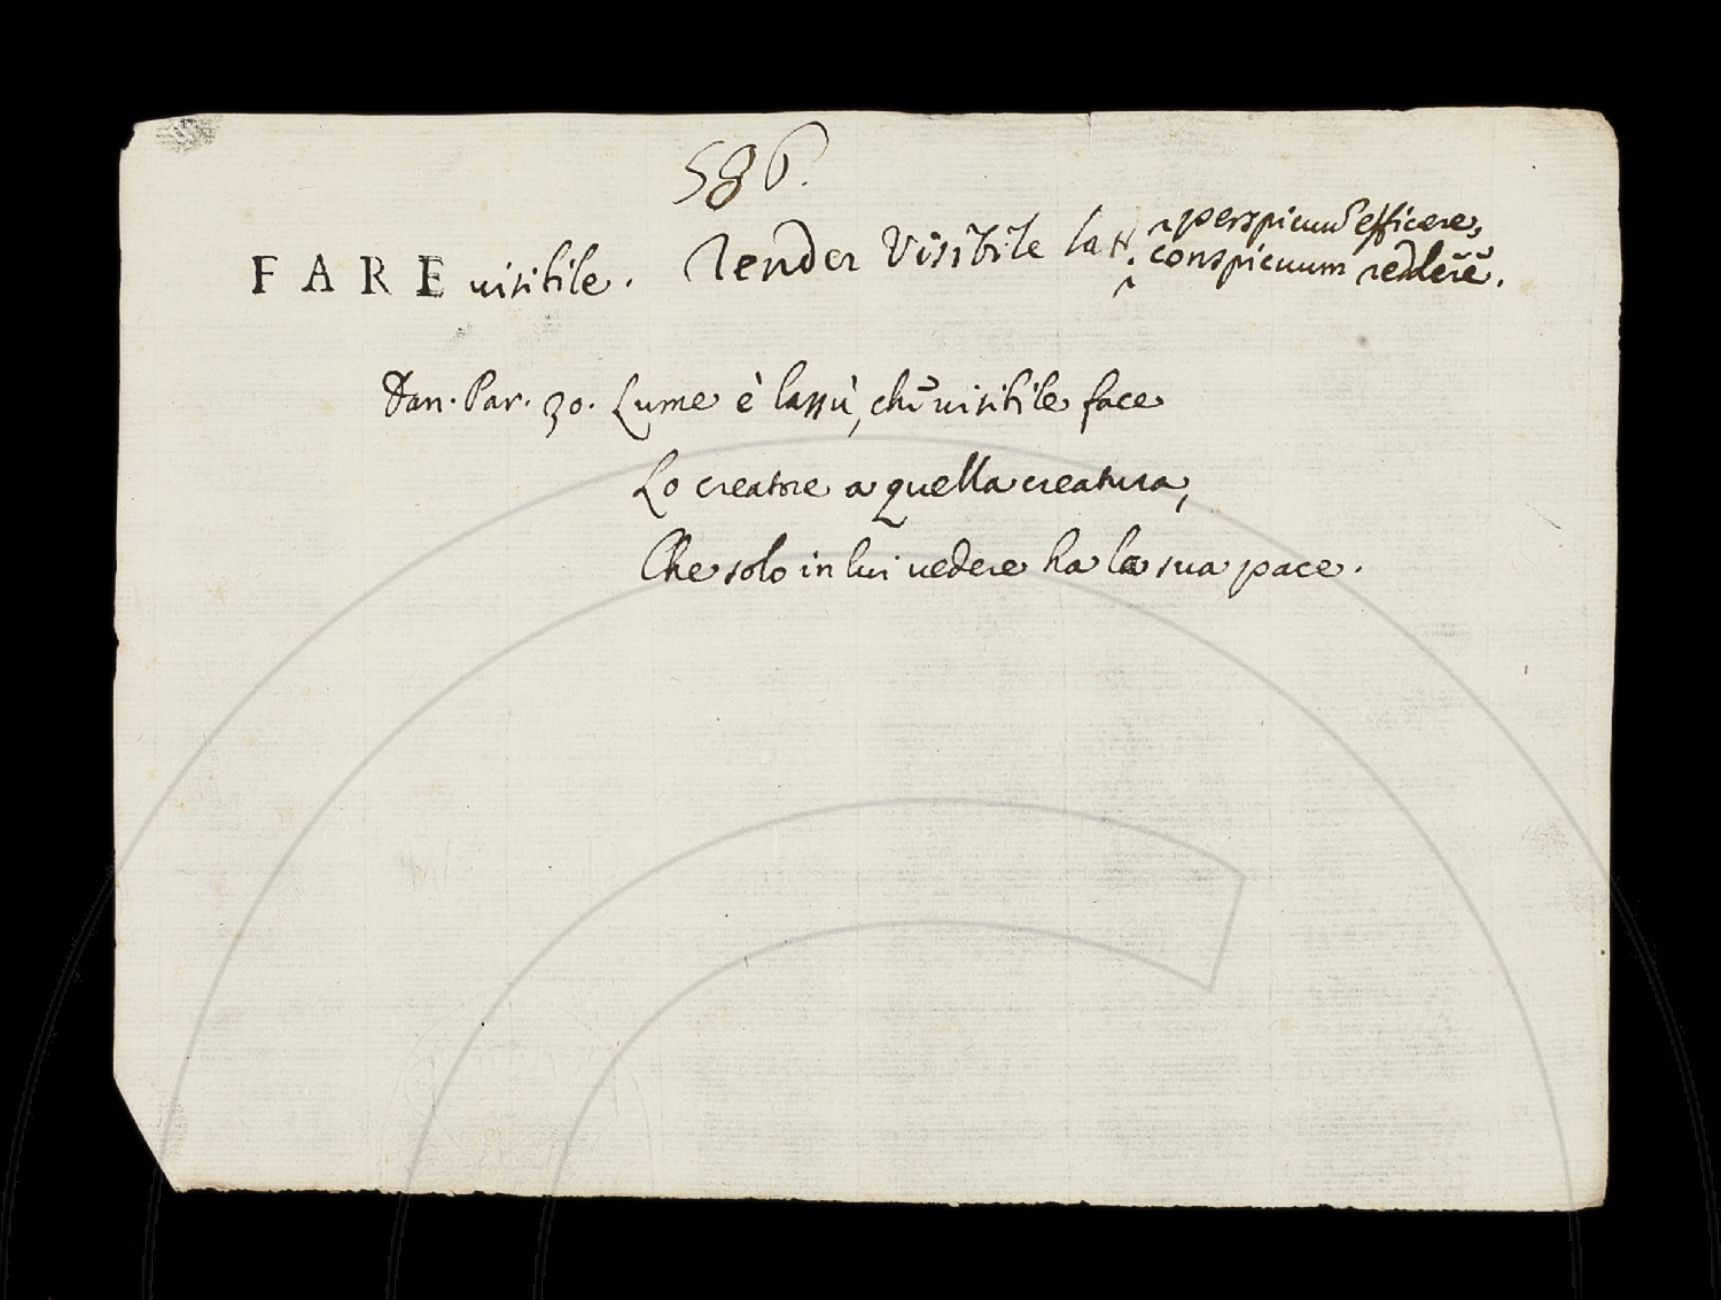 586.
FARE visibile. Render visibile lat. perspicuũ efficere,
conspicuum reddere.
Dan. Par. 30. Lume è lassù, che visibile face
Lo creatore a quella creatura,
Che solo in lui vedere ha la sua pace.